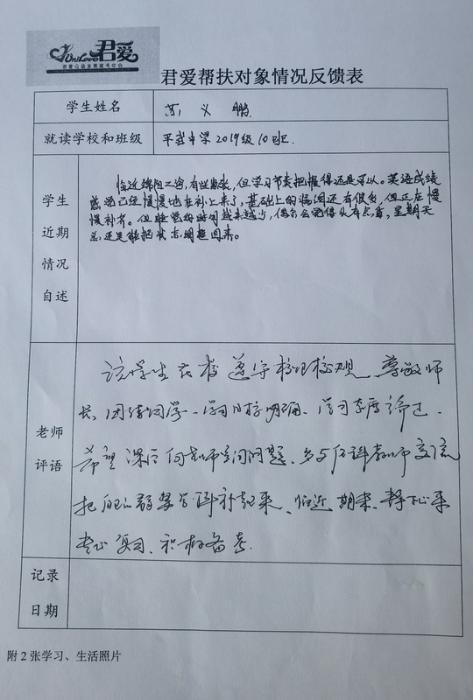 UniLove 君爱
君爱帮扶对象情况反馈表
学生姓名 苏 义 鹏
就读学校和班级 平武中学2019级10班
学生近期情况自述
临近绵阳二诊,有些紧张,但学习节奏把握得还是可以。英语成绩
感觉已经慢慢地在补上来了,基础上的漏洞还有很多,但正在慢
慢补齐。但睡觉的时间越来越少,偶尔会觉得头有点昏,星期天
总还是能把状态调整回来。
老师评语
该学生在校遵守校纪校规,尊敬师
长,团结同学,学习目标明确,学习态度端正。
希望课后向老师多问问题,多与后科教师交流
把自己弱势学科补起来,临近期末,静下心来
专心复习、积极备考。
记录日期
附 2 张学习、生活照片